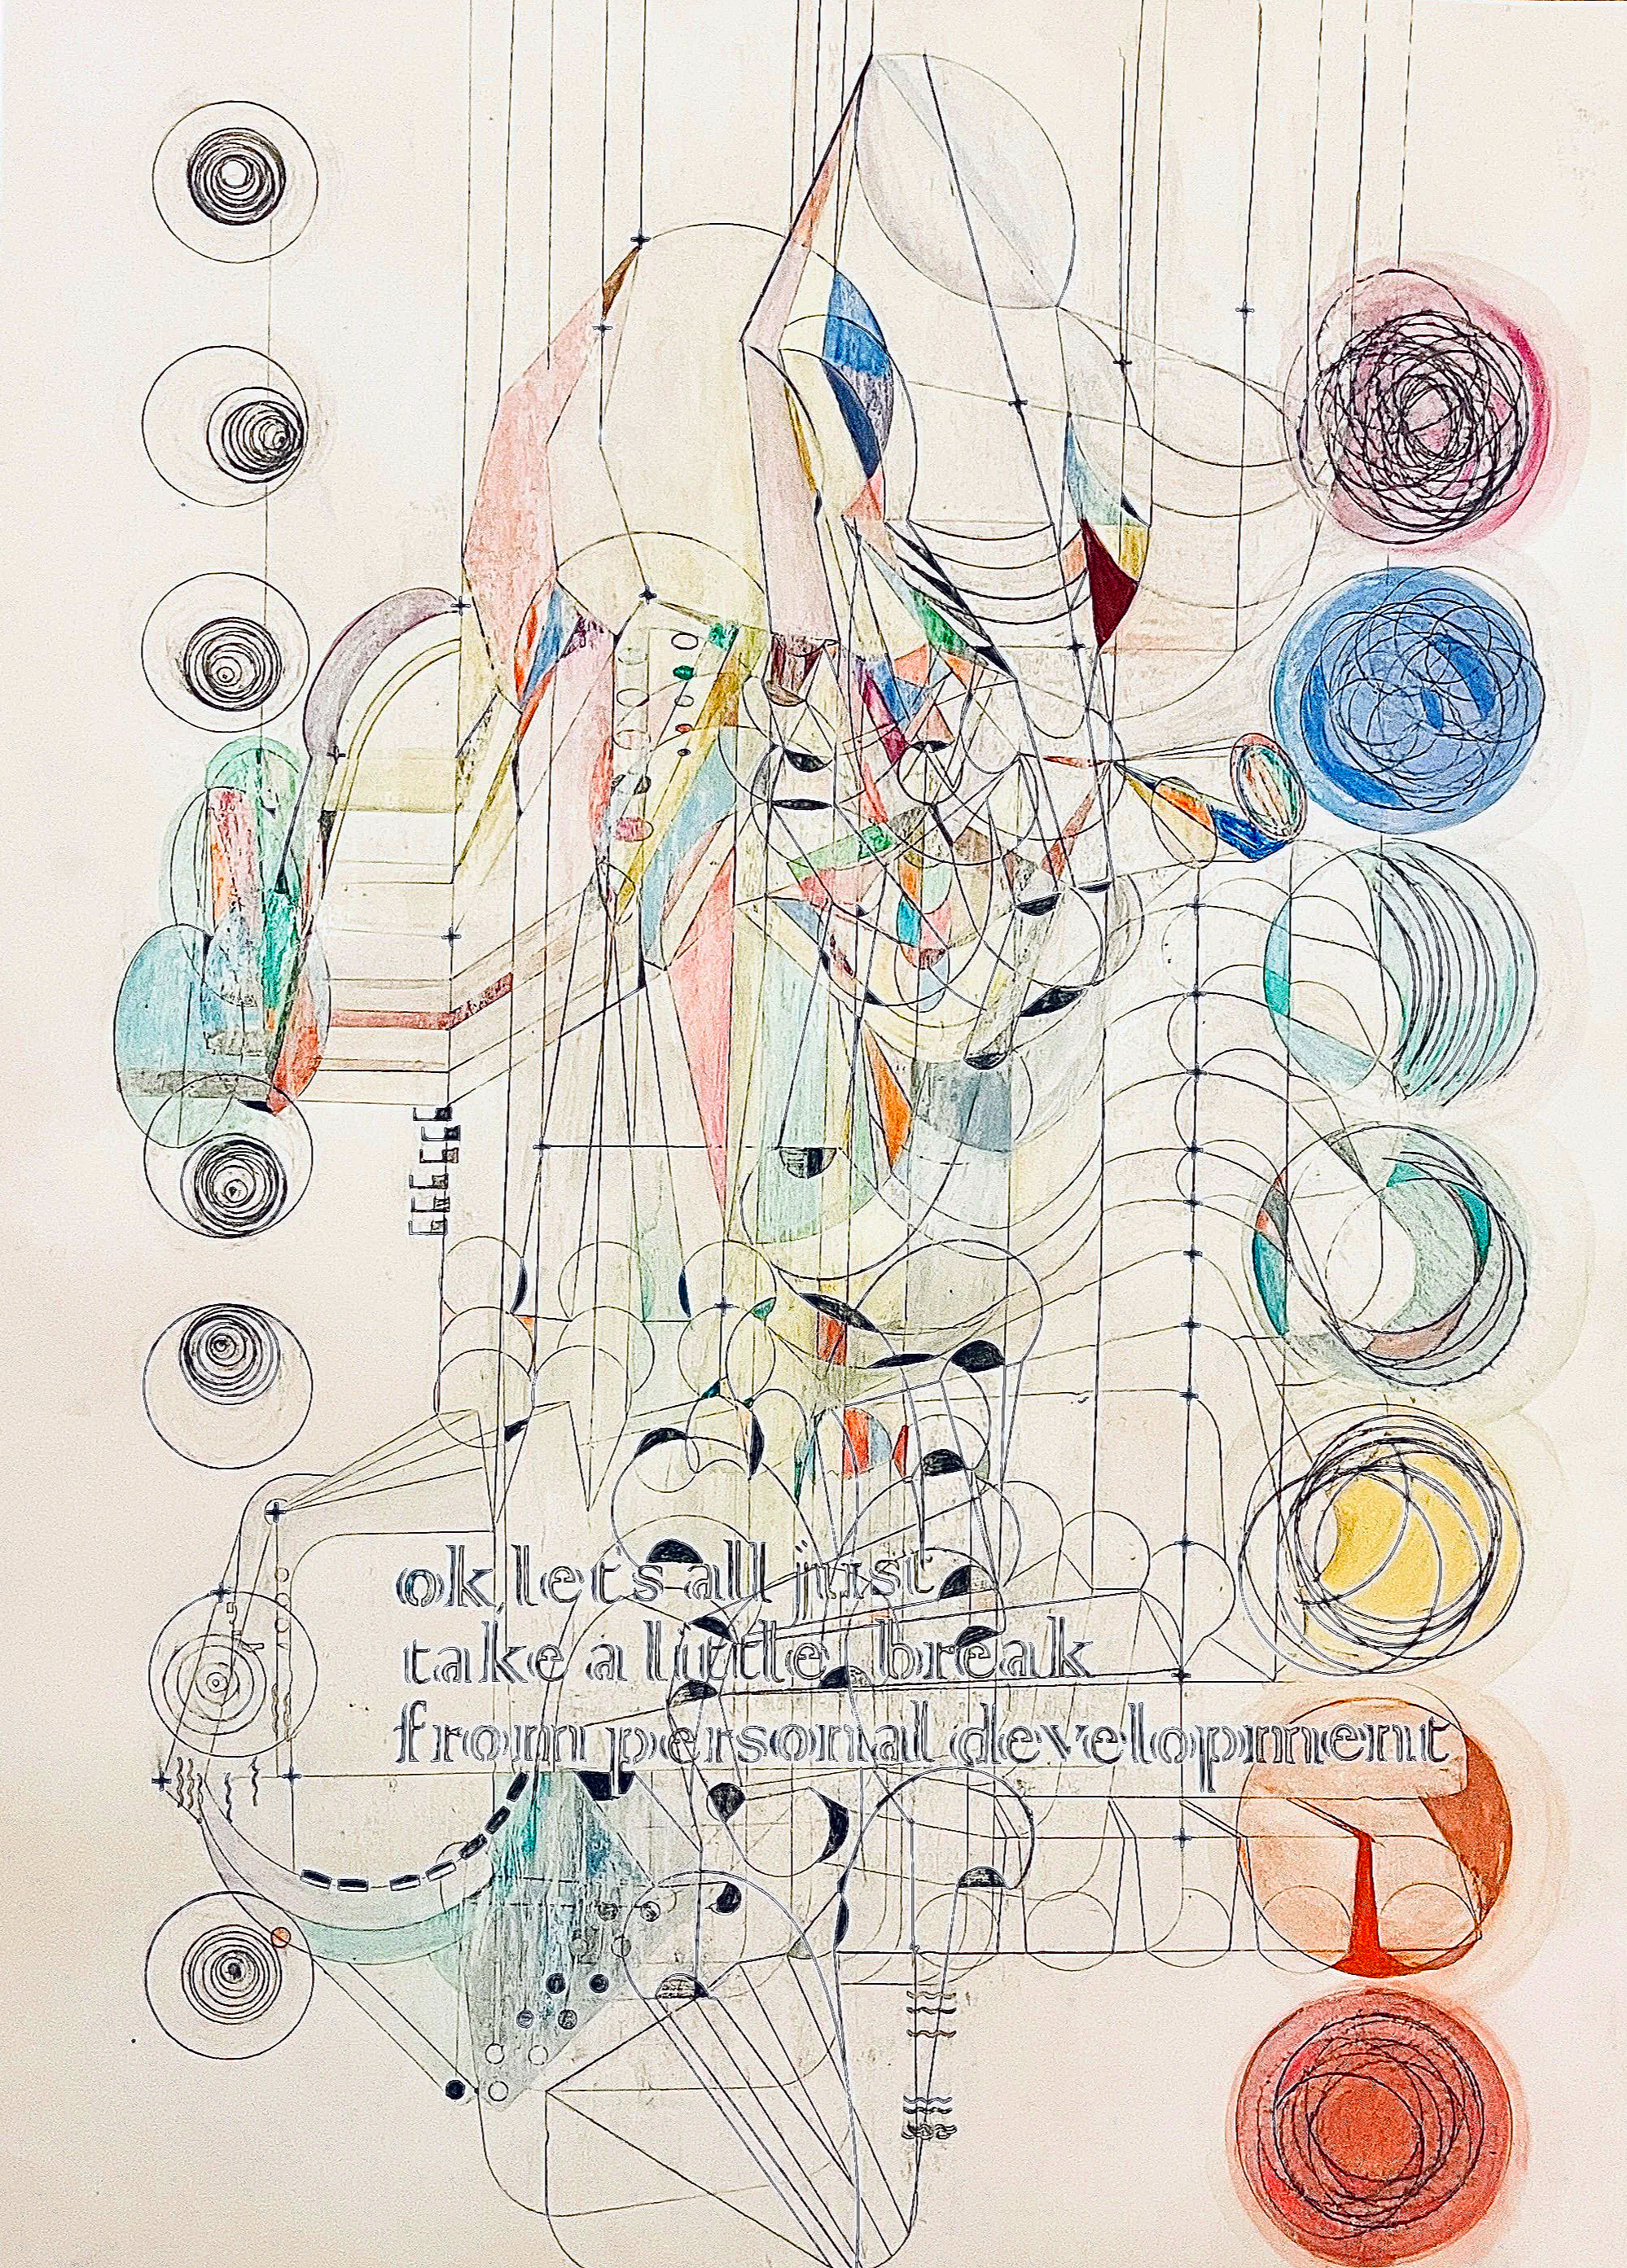 ok, let's all just
take a little break
from personal development